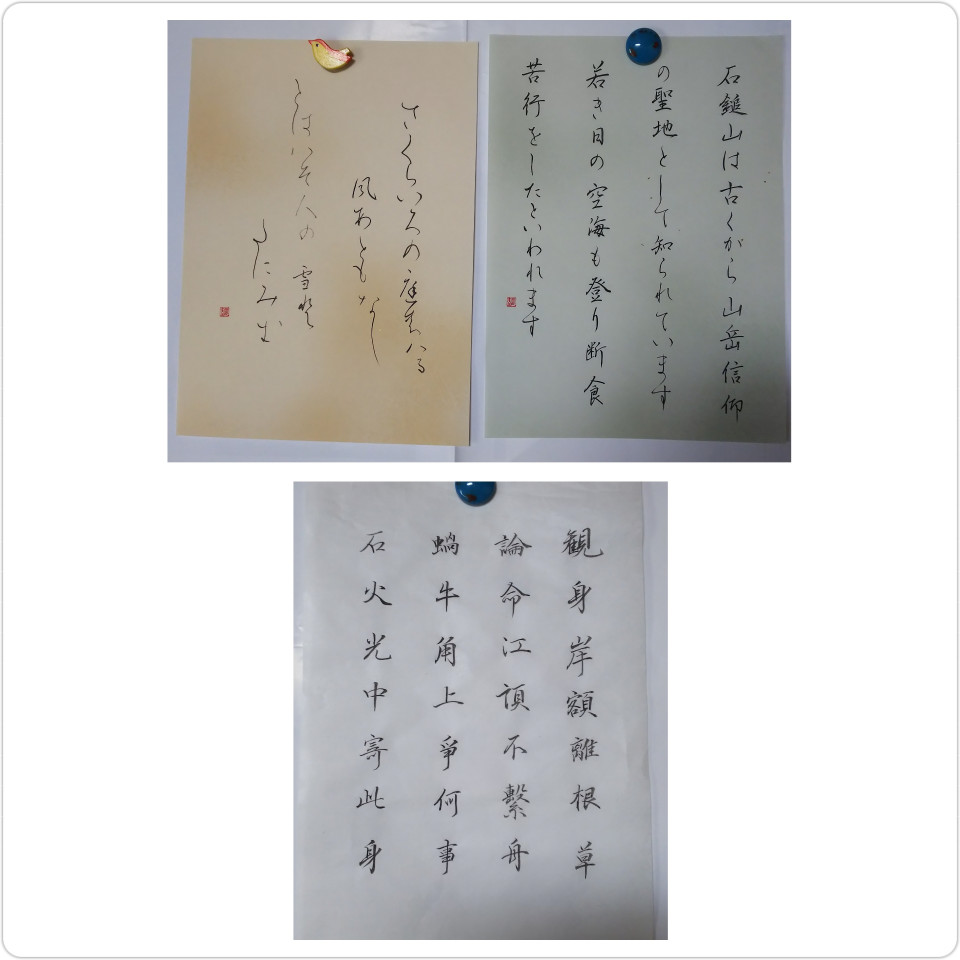 さくらいろの庭の八る
風あともなし
とはゝそ人の雪登
たにみむ
石鎚山は古くから山岳信仰
の聖地として知られています
若き日の空海も登り断食
苦行をしたといわれます
観身岸額離根草
論命江頭不繫舟
蝸牛角上爭何事
石火光中寄此身